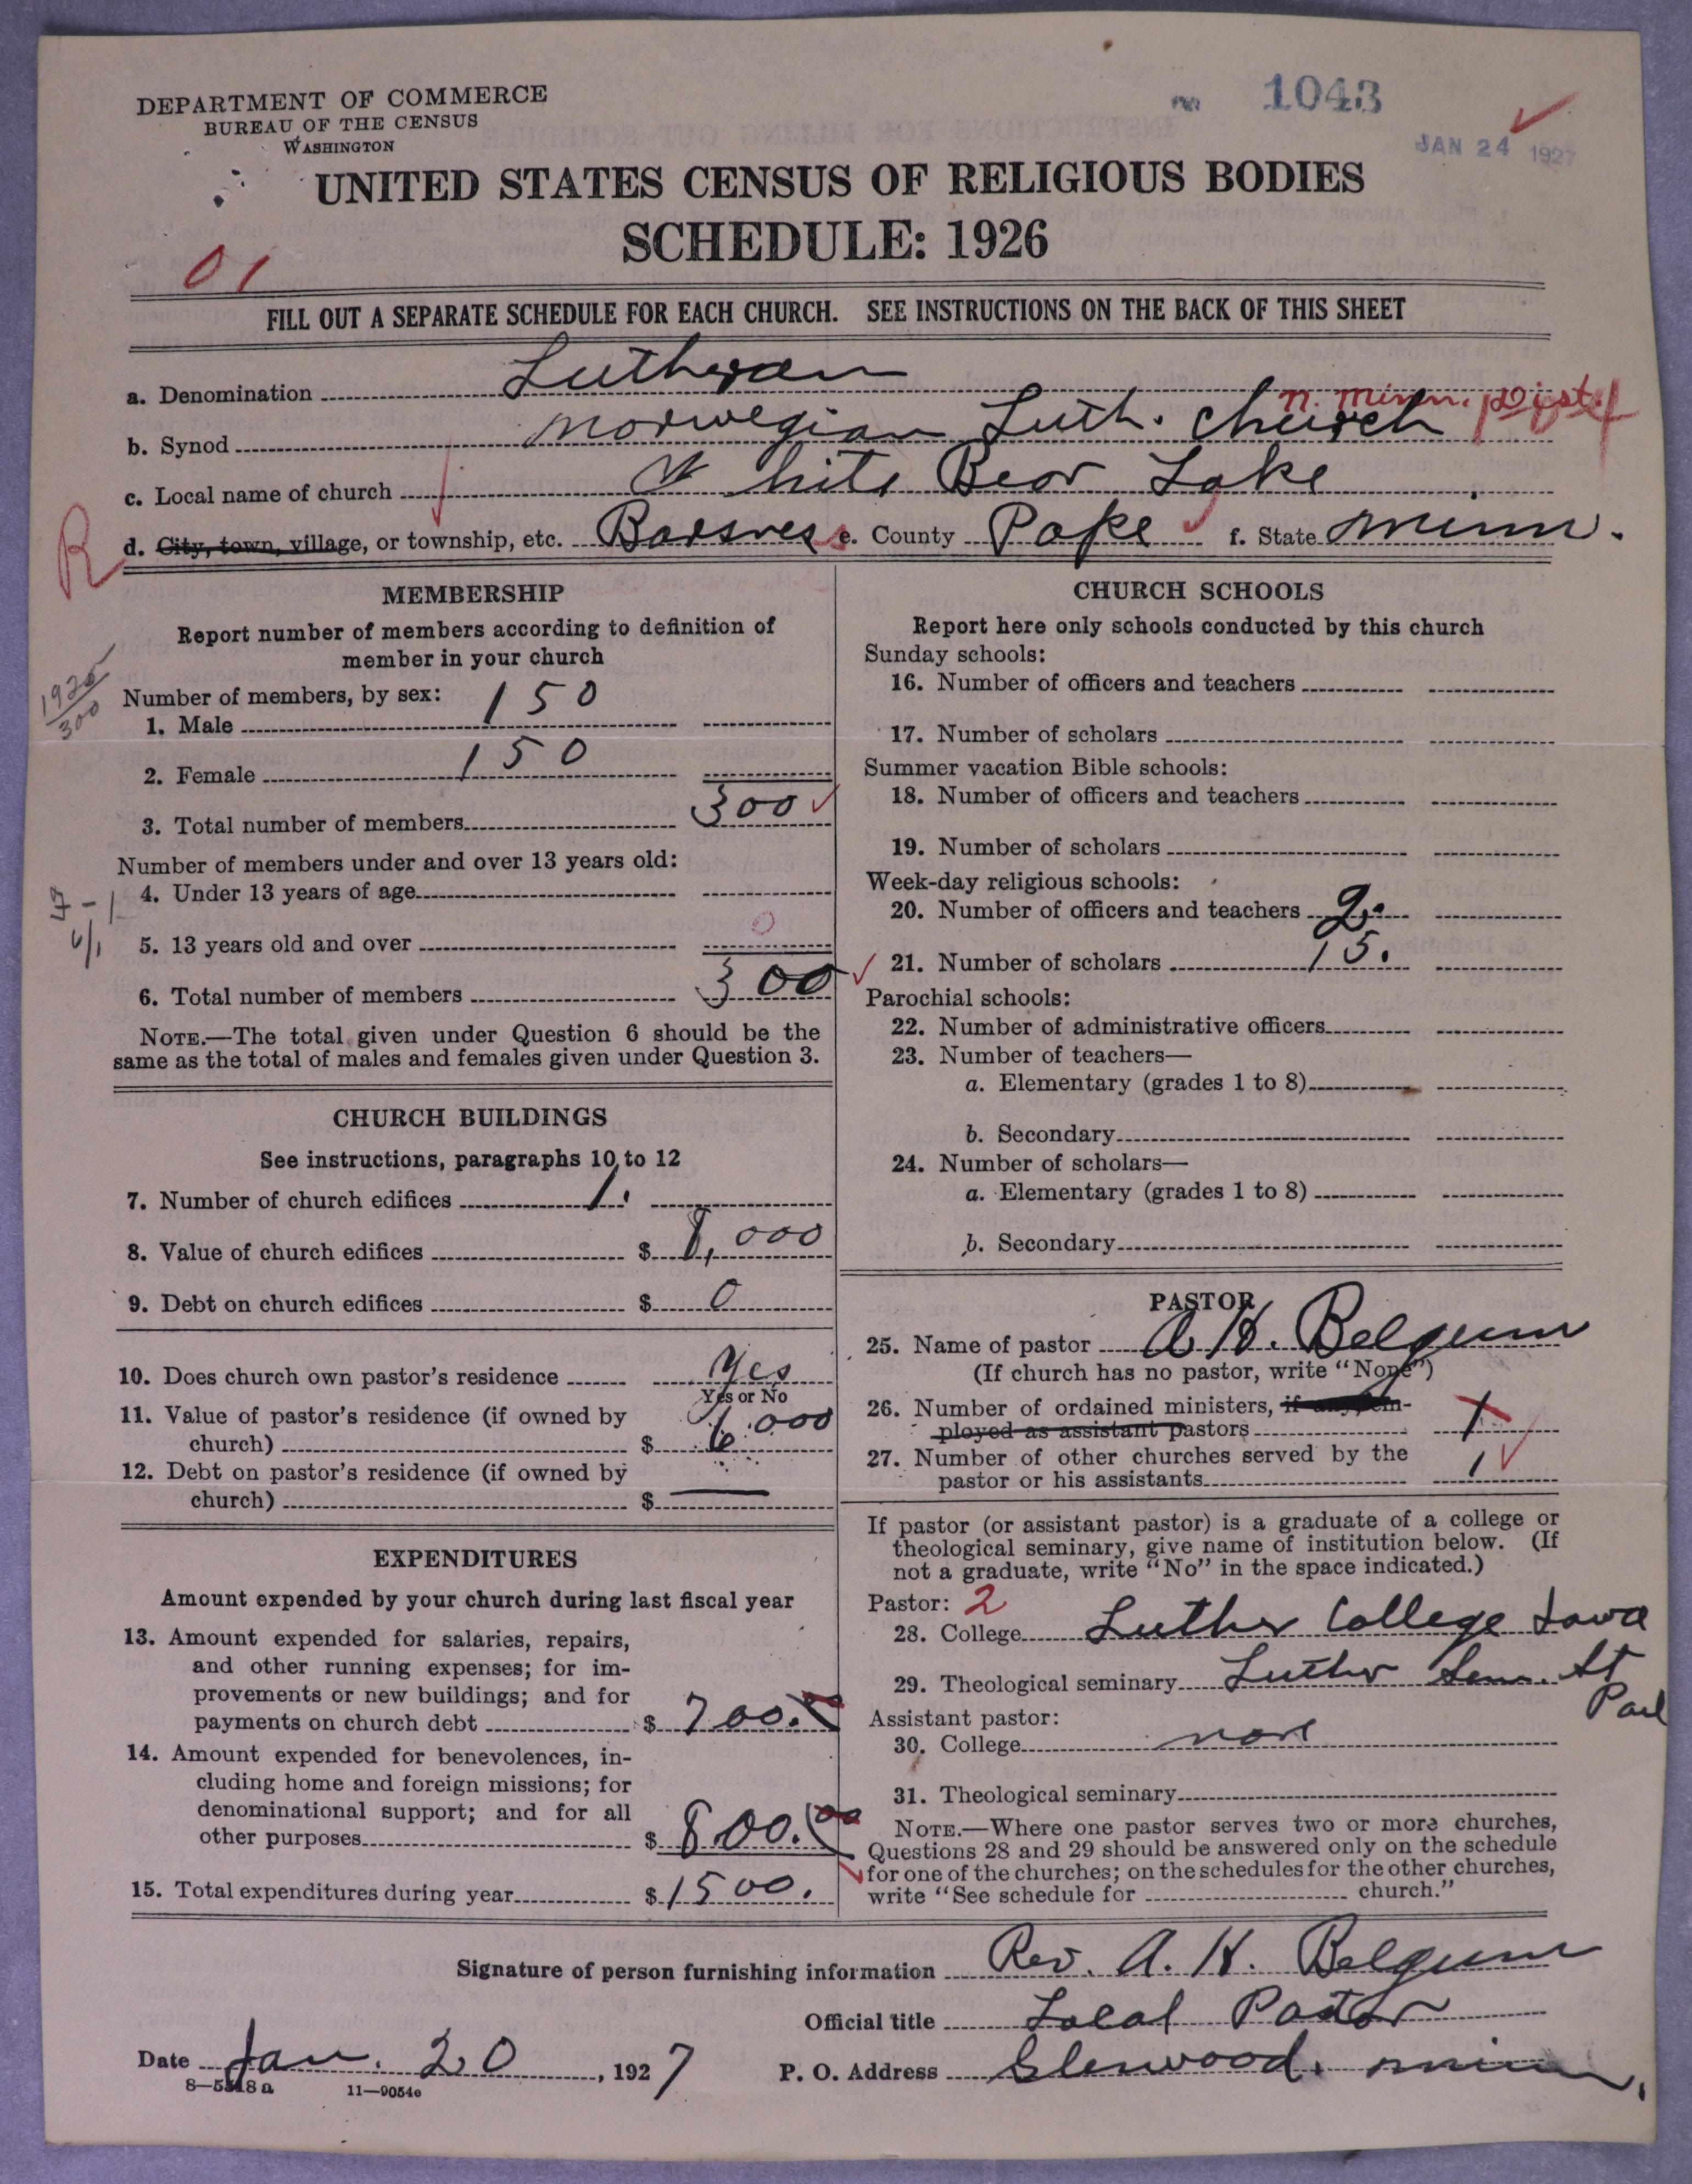 DEPARTMENT OF COMMERCE
BUREAU OF THE CENSUS
WASHINGTON
1043
JAN 24 1927
UNITED STATES CENSUS OF RELIGIOUS BODIES
SCHEDULE: 1926
01
FILL OUT A SEPARATE SCHEDULE FOR EACH CHURCH. SEE INSTRUCTIONS ON THE BACK OF THIS SHEET
a. Denomination Lutheran
n. Minn. Dist.
b. Synod Norwegian Luth. Church
c. Local name of church White Bear Lake
R
d. City, town, village, or township, etc. Barsness e. County Pope f. State Minn.
MEMBERSHIP
Report number of members according to definition of
member in your church
1926
300
Number of members, by sex:
1. Male 150
2. Female 150
3. Total number of members 300
Number of members under and over 13 years old:
4. Under 13 years of age
5. 13 years old and over 0
6. Total number of members 300
NOTE.—The total given under Question 6 should be the
same as the total of males and females given under Question 3.
CHURCH BUILDINGS
See instructions, paragraphs 10 to 12
7. Number of church edifices 1.
8. Value of church edifices $ 8,000
9. Debt on church edifices $ 0
10. Does church own pastor's residence Yes
Yes or No
11. Value of pastor's residence (if owned by
church) $ 6,000
12. Debt on pastor's residence (if owned by
church) $ —
EXPENDITURES
Amount expended by your church during last fiscal year
13. Amount expended for salaries, repairs,
and other running expenses; for im-
provements or new buildings; and for
payments on church debt $ 700.
14. Amount expended for benevolences, in-
cluding home and foreign missions; for
denominational support; and for all
other purposes $ 800.00
15. Total expenditures during year $ 1500.
CHURCH SCHOOLS
Report here only schools conducted by this church
Sunday schools:
16. Number of officers and teachers
17. Number of scholars
Summer vacation Bible schools:
18. Number of officers and teachers
19. Number of scholars
Week-day religious schools:
20. Number of officers and teachers 2.
21. Number of scholars 15.
Parochial schools:
22. Number of administrative officers
23. Number of teachers—
a. Elementary (grades 1 to 8)
b. Secondary
24. Number of scholars—
a. Elementary (grades 1 to 8)
b. Secondary
PASTOR
25. Name of pastor A. H. Belgum
(If church has no pastor, write "None")
26. Number of ordained ministers, if any, em-
ployed as assistant pastors 1
27. Number of other churches served by the
pastor or his assistants 1
If pastor (or assistant pastor) is a graduate of a college or
theological seminary, give name of institution below. (If
not a graduate, write "No" in the space indicated.)
Pastor: 2
28. College Luther College Iowa
29. Theological seminary Luther Sem. St
Paul
Assistant pastor:
30. College none
31. Theological seminary
NOTE.—Where one pastor serves two or more churches,
Questions 28 and 29 should be answered only on the schedule
for one of the churches; on the schedules for the other churches,
write "See schedule for church."
Signature of person furnishing information Rev. A. H. Belgum
Official title Local Pastor
Date Jan. 20, 1927 P. O. Address Glenwood, Minn.
8—5318a 11—9054e